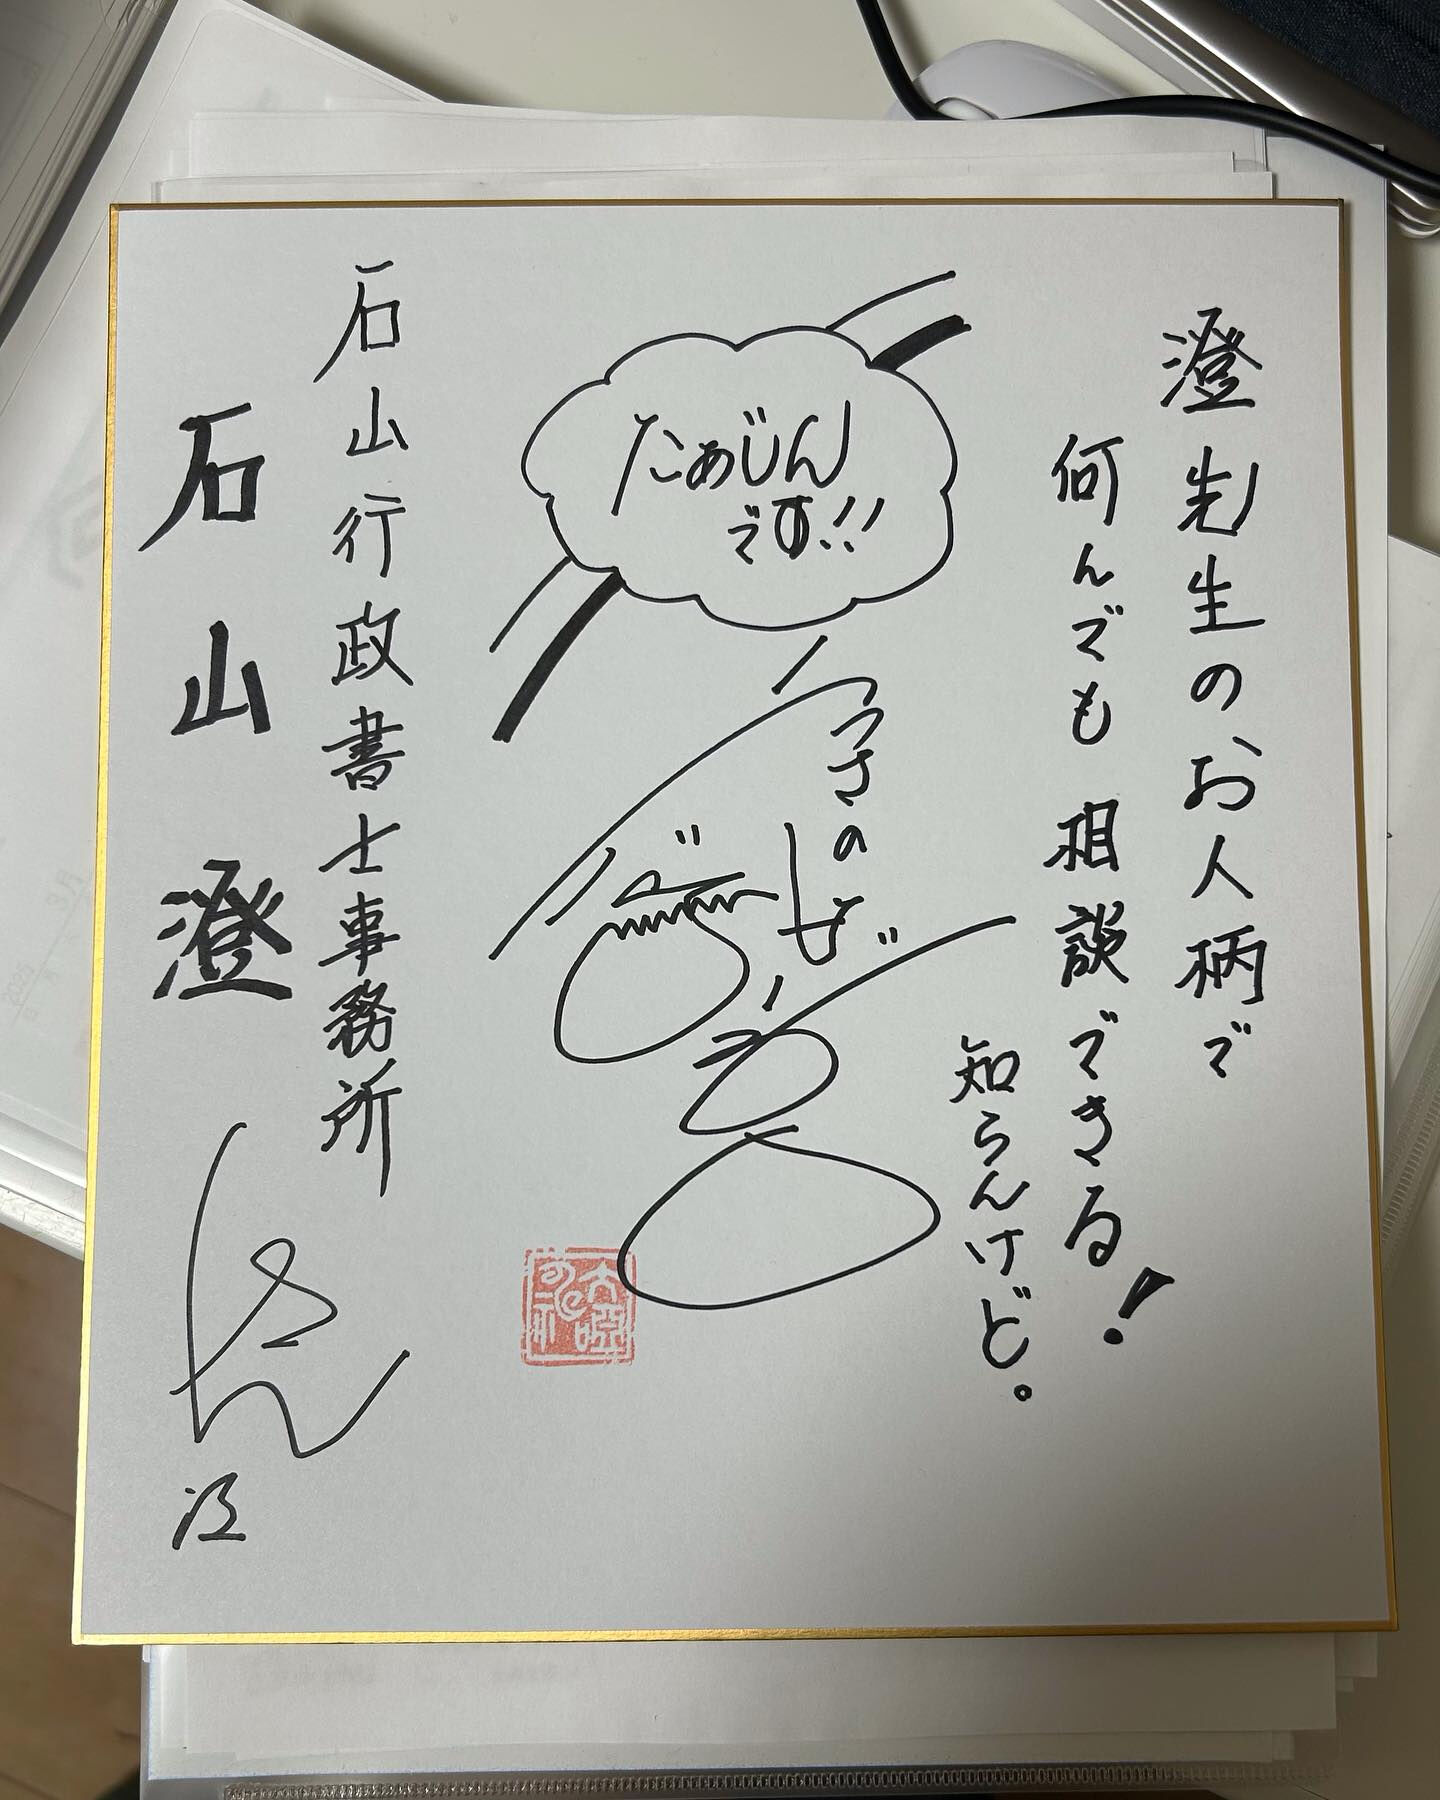 澄先生のお人柄で
何んでも相談できる!
知らんけど。
たぁじん
です!!
石山行政書士事務所
石山澄